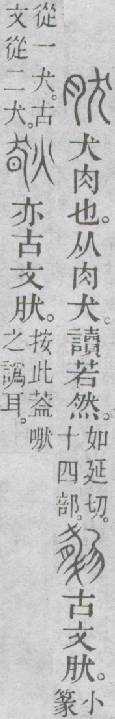 肰犬肉也。从肉犬。讀若然。如延切。十四部。古文肰。小篆
從一犬。古文從二犬。亦古文肰。按此葢㹞之譌耳。